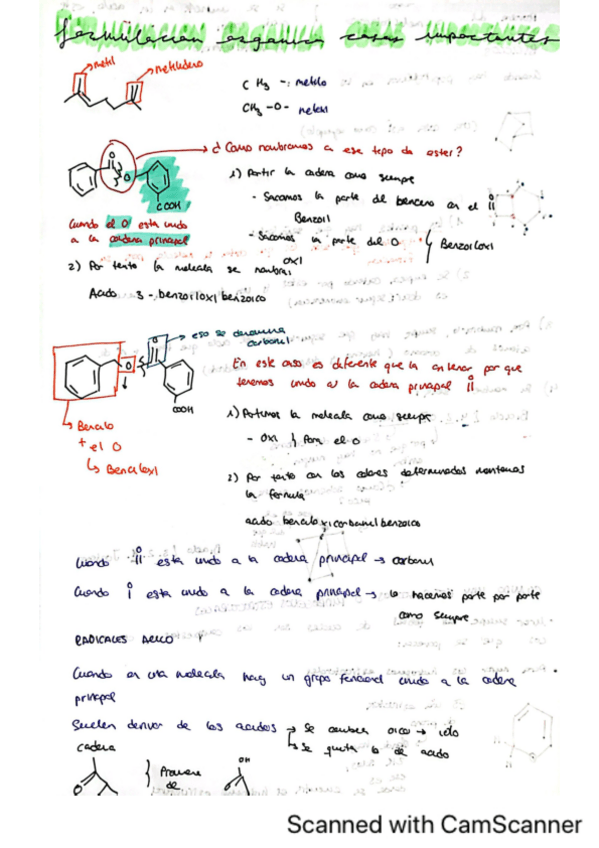 formulación orgánica casos importantes
metil
metilideno
CH3 -: metilo
CH3 -O- metoxi
O
O
COOH
¿Como nombramos a ese tipo de ester?
1) Partir la cadena como siempre
- Sacamos la parte del benceno en el O
Benzoil
- Sacamos la parte del O
oxi
Benzoiloxi
Cuando el O esta unido
a la cadena principal
2) Por tanto la molecula se nombra:
Acido 3-benzoiloxibenzoico
eso se denomina
carbonil
O
O
COOH
En este caso es diferente que la anterior por que
tenemos unido a la cadena principal O
1) Partimos la molecula como siempre
- Oxi } Para el O
Bencilo
+ el O
Benciloxi
2) Por tanto con los colores determinados montamos
la formula
acido benciloxicarbonilbenzoico
Cuando O esta unido a la cadena principal → carbonil
Cuando O esta unido a la cadena principal → lo hacemos parte por parte
como siempre
RADICALES ACILO
Cuando en una molecula hay un grupo funcional unido a la cadena
principal
Suelen derivar de los acidos → Se cambia oico → oilo
Se quita lo de acido
cadena
O
} Proviene
de
OH
O
Scanned with CamScanner